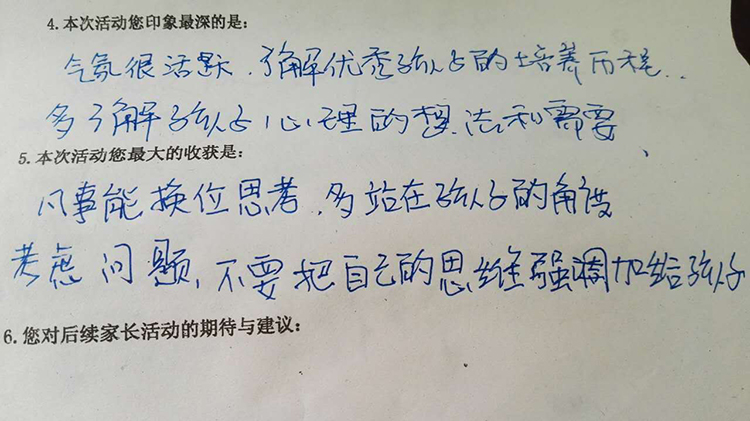 4.本次活动您印象最深的是:
气氛很活跃,了解优秀孩子的培养历程..
多了解孩子心理的想法和需要、
5.本次活动您最大的收获是:
凡事能换位思考,多站在孩子的角度
考虑问题,不要把自己的思维强调加给孩子
6.您对后续家长活动的期待与建议: